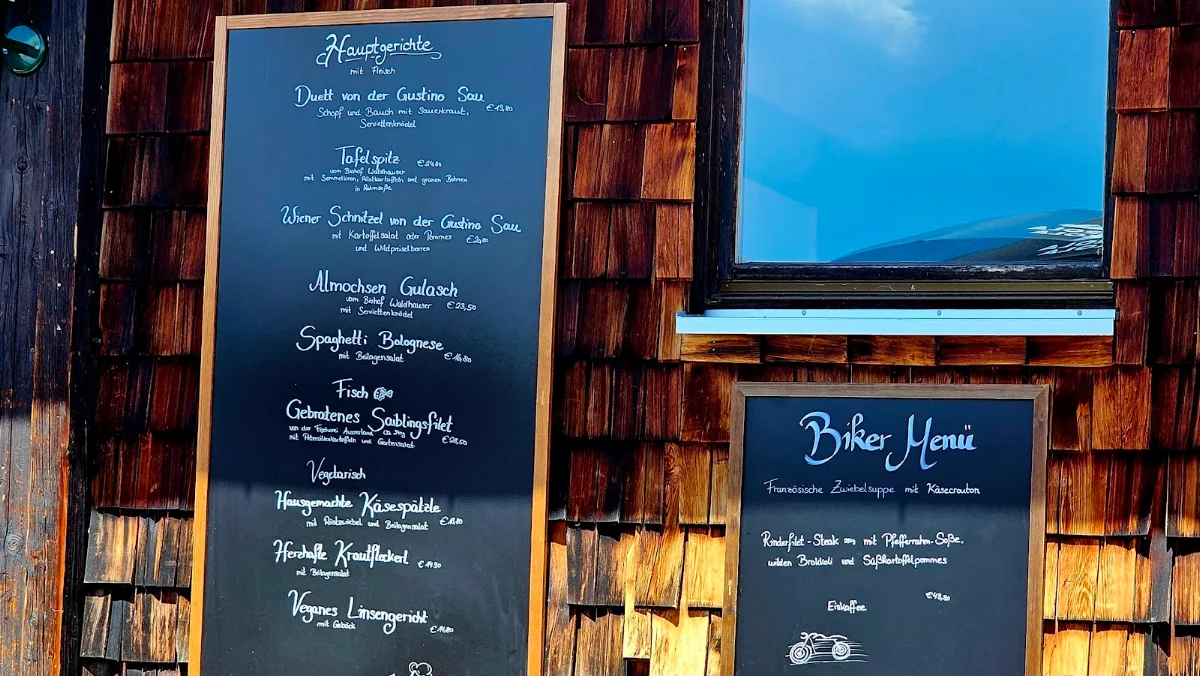 Hauptgerichte
mit Fleisch
Duett von der Gustino Sau
Schopf und Bauch mit Sauerkraut,
Serviettenknödel
Tafelspitz
vom Biohof Waldhauser
mit Semmelkren, Röstkartoffeln und grünen Bohnen
in Rahmsoße
Wiener Schnitzel von der Gustino Sau
mit Kartoffelsalat oder Pommes
und Wildpreiselbeeren
Almochsen Gulasch
vom Biohof Waldhauser €23,50
mit Serviettenknödel
Spaghetti Bolognese
mit Beilagensalat
Fisch
Gebratenes Saiblingsfilet
von der Fischerei Ausseerland
mit Petersilienkartoffeln und Gartensalat
Vegetarisch
Hausgemachte Käsespätzle
mit Röstzwiebel und Beilagensalat
Herzhafte Krautfleckerl
mit Beilagensalat
Veganes Linsengericht
mit Gebäck
Biker Menü
Französische Zwiebelsuppe mit Käsecrouton
Rinderfilet-Steak mit Pfefferrahm-Soße,
wilden Brokkoli und Süßkartoffelpommes
Eiskaffee